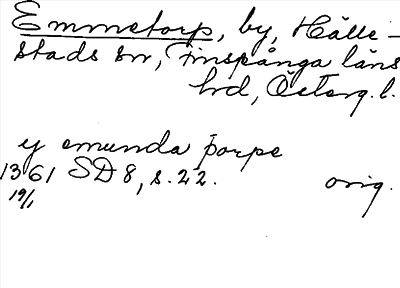 Emmetorp, by, Hälle-
stads sn, Finspånga läns
hd, Österg. l.
y emunda þorpe
1361 SD 8, s. 22. orig.
19/1